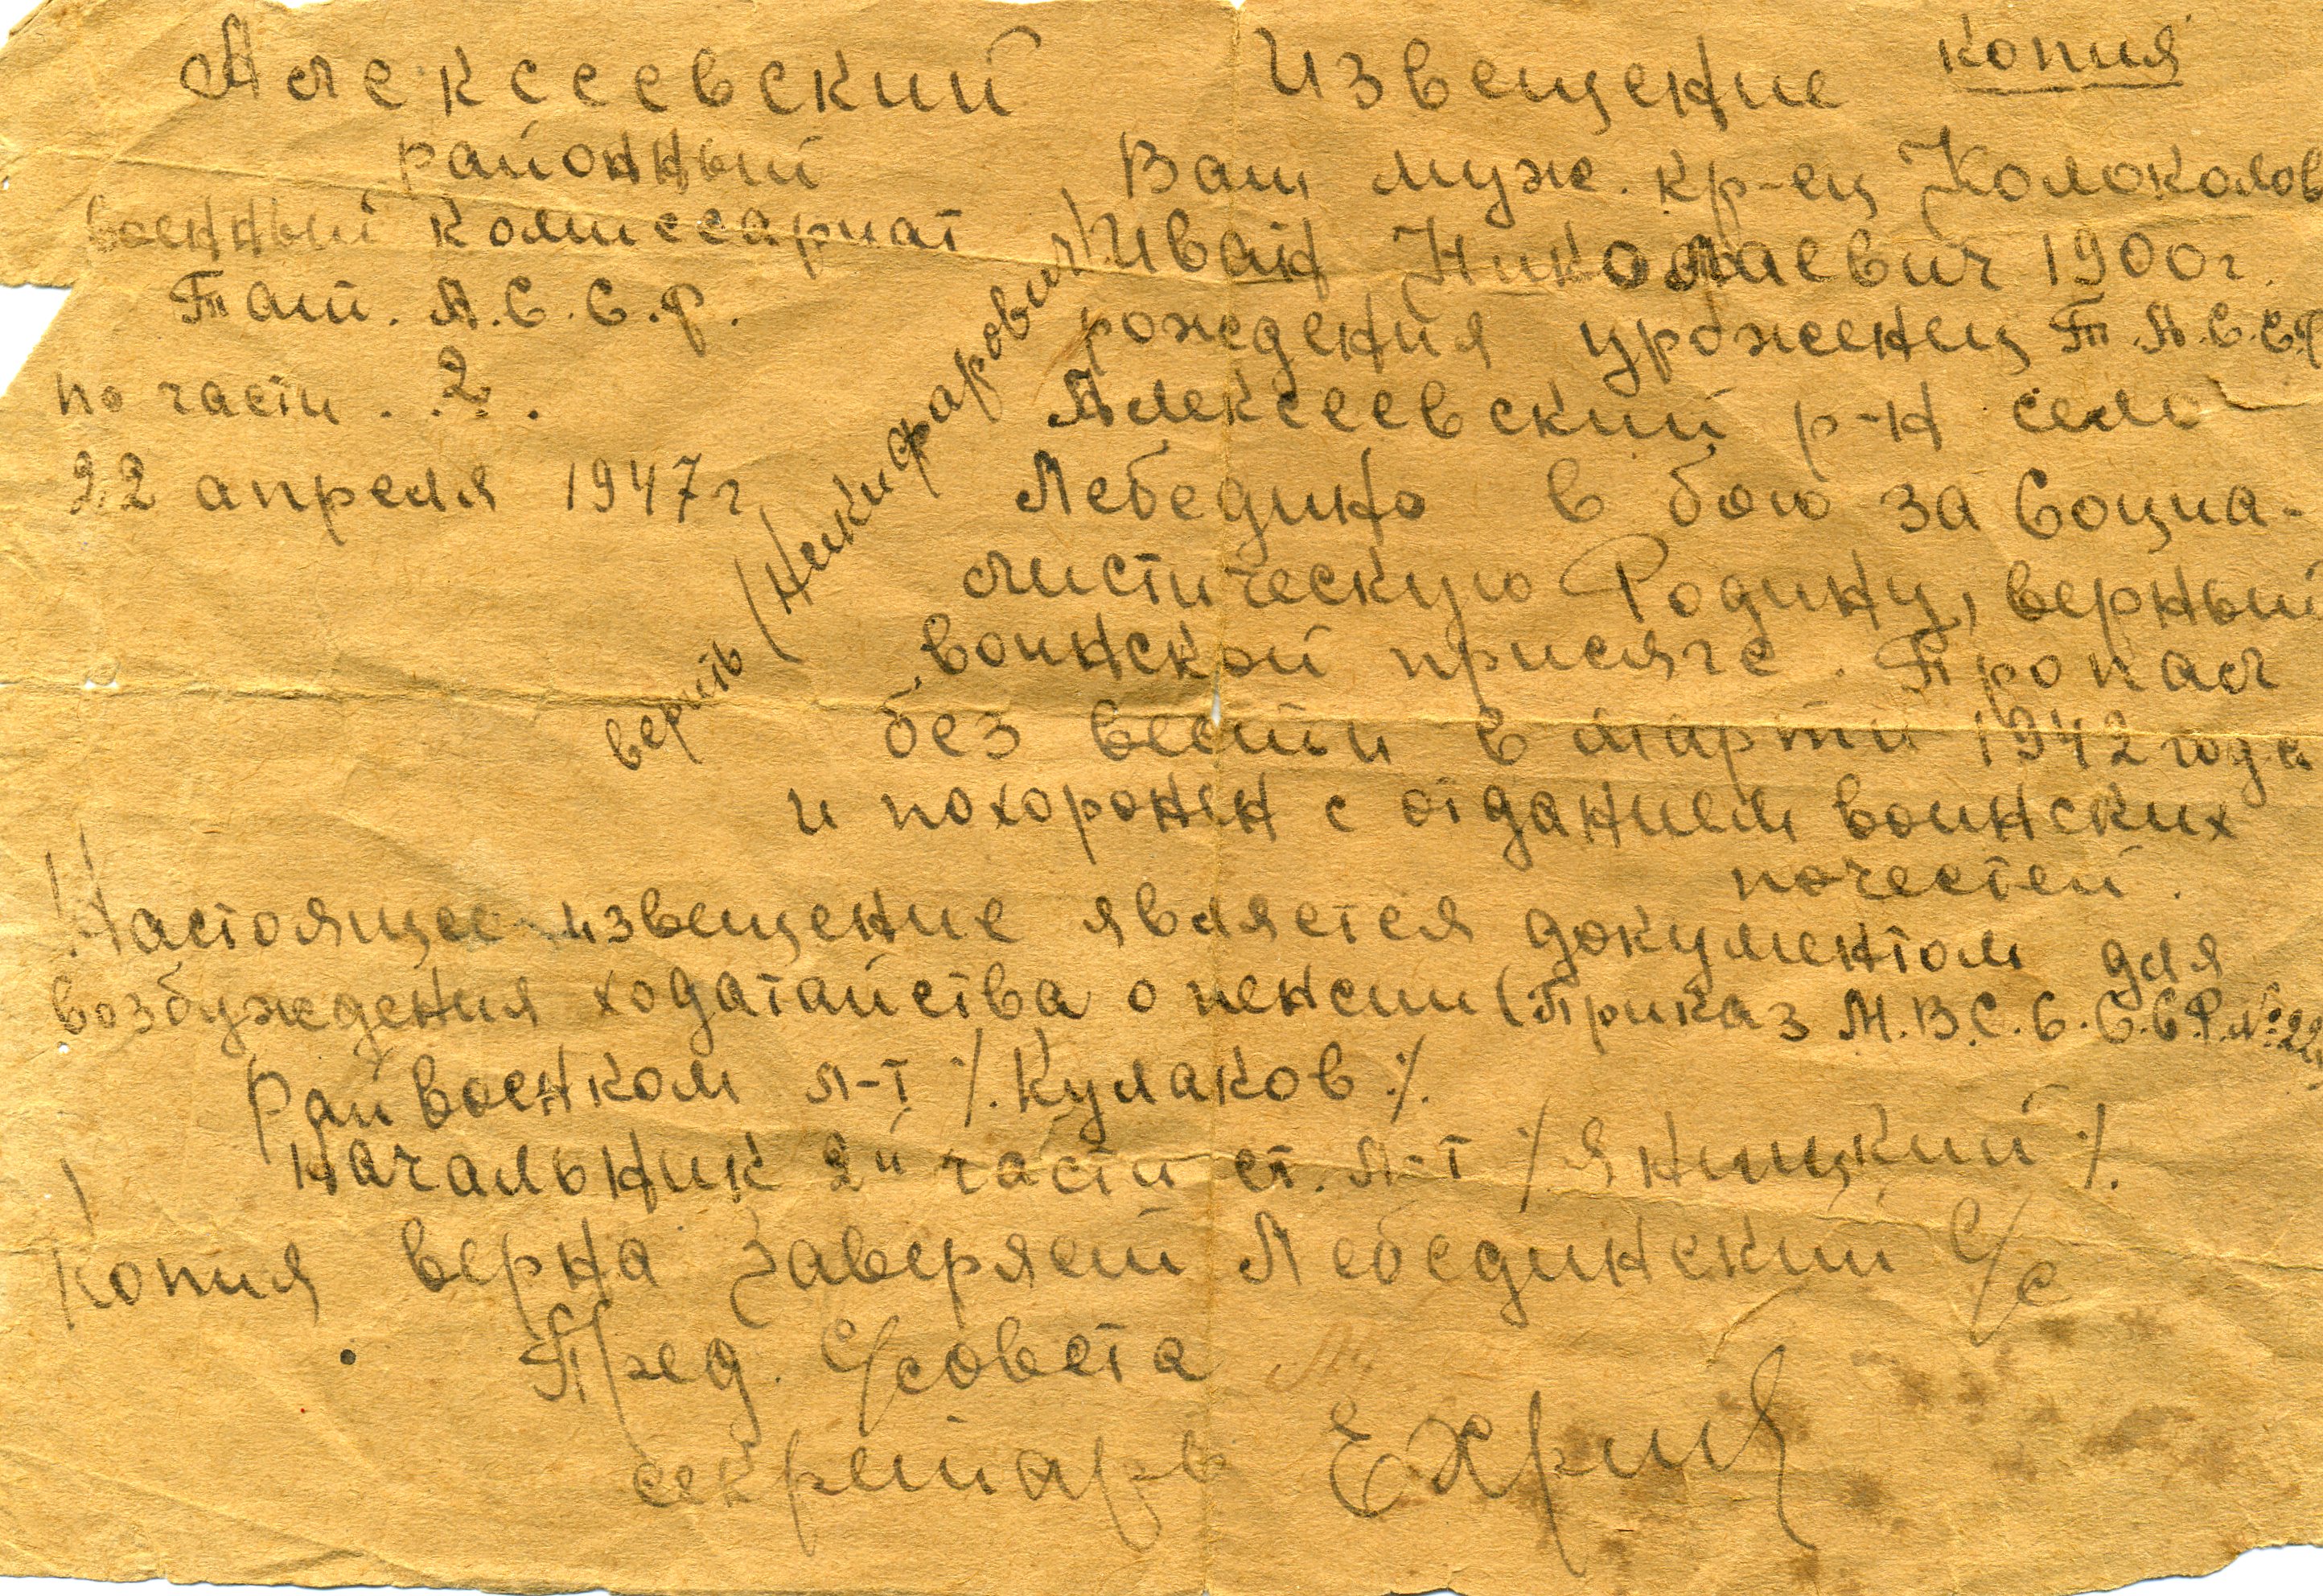 Алексеевский
районный
военный комиссариат
Тат. А.С.С.Р.
по части . 2 .
22 апреля 1947 г
Извещение копия
Ваш муж. кр-ец Колоколов
Иван Николаевич 1900 г.
верить (Никифарович)
рождения уроженец Т.А.С.С.Р
Алексеевский р-н село
Лебедино в бою за Социа-
листическую Родину, верный
воинской присяге. Пропал
без вести в марти 1942 года
и похоронен с отданием воинских
почестей.
Настоящее извещение является документом для
возбуждения ходатайства о пенсии (Приказ М.В.С.С.С.С.Р. №22
Райвоенком л-т /. Кулаков ./.
Начальник 2й части ст. л-т ./. Яницкий ./.
Копия верна Заверяет Лебединский С/с
Пред. С/совета
секретарь